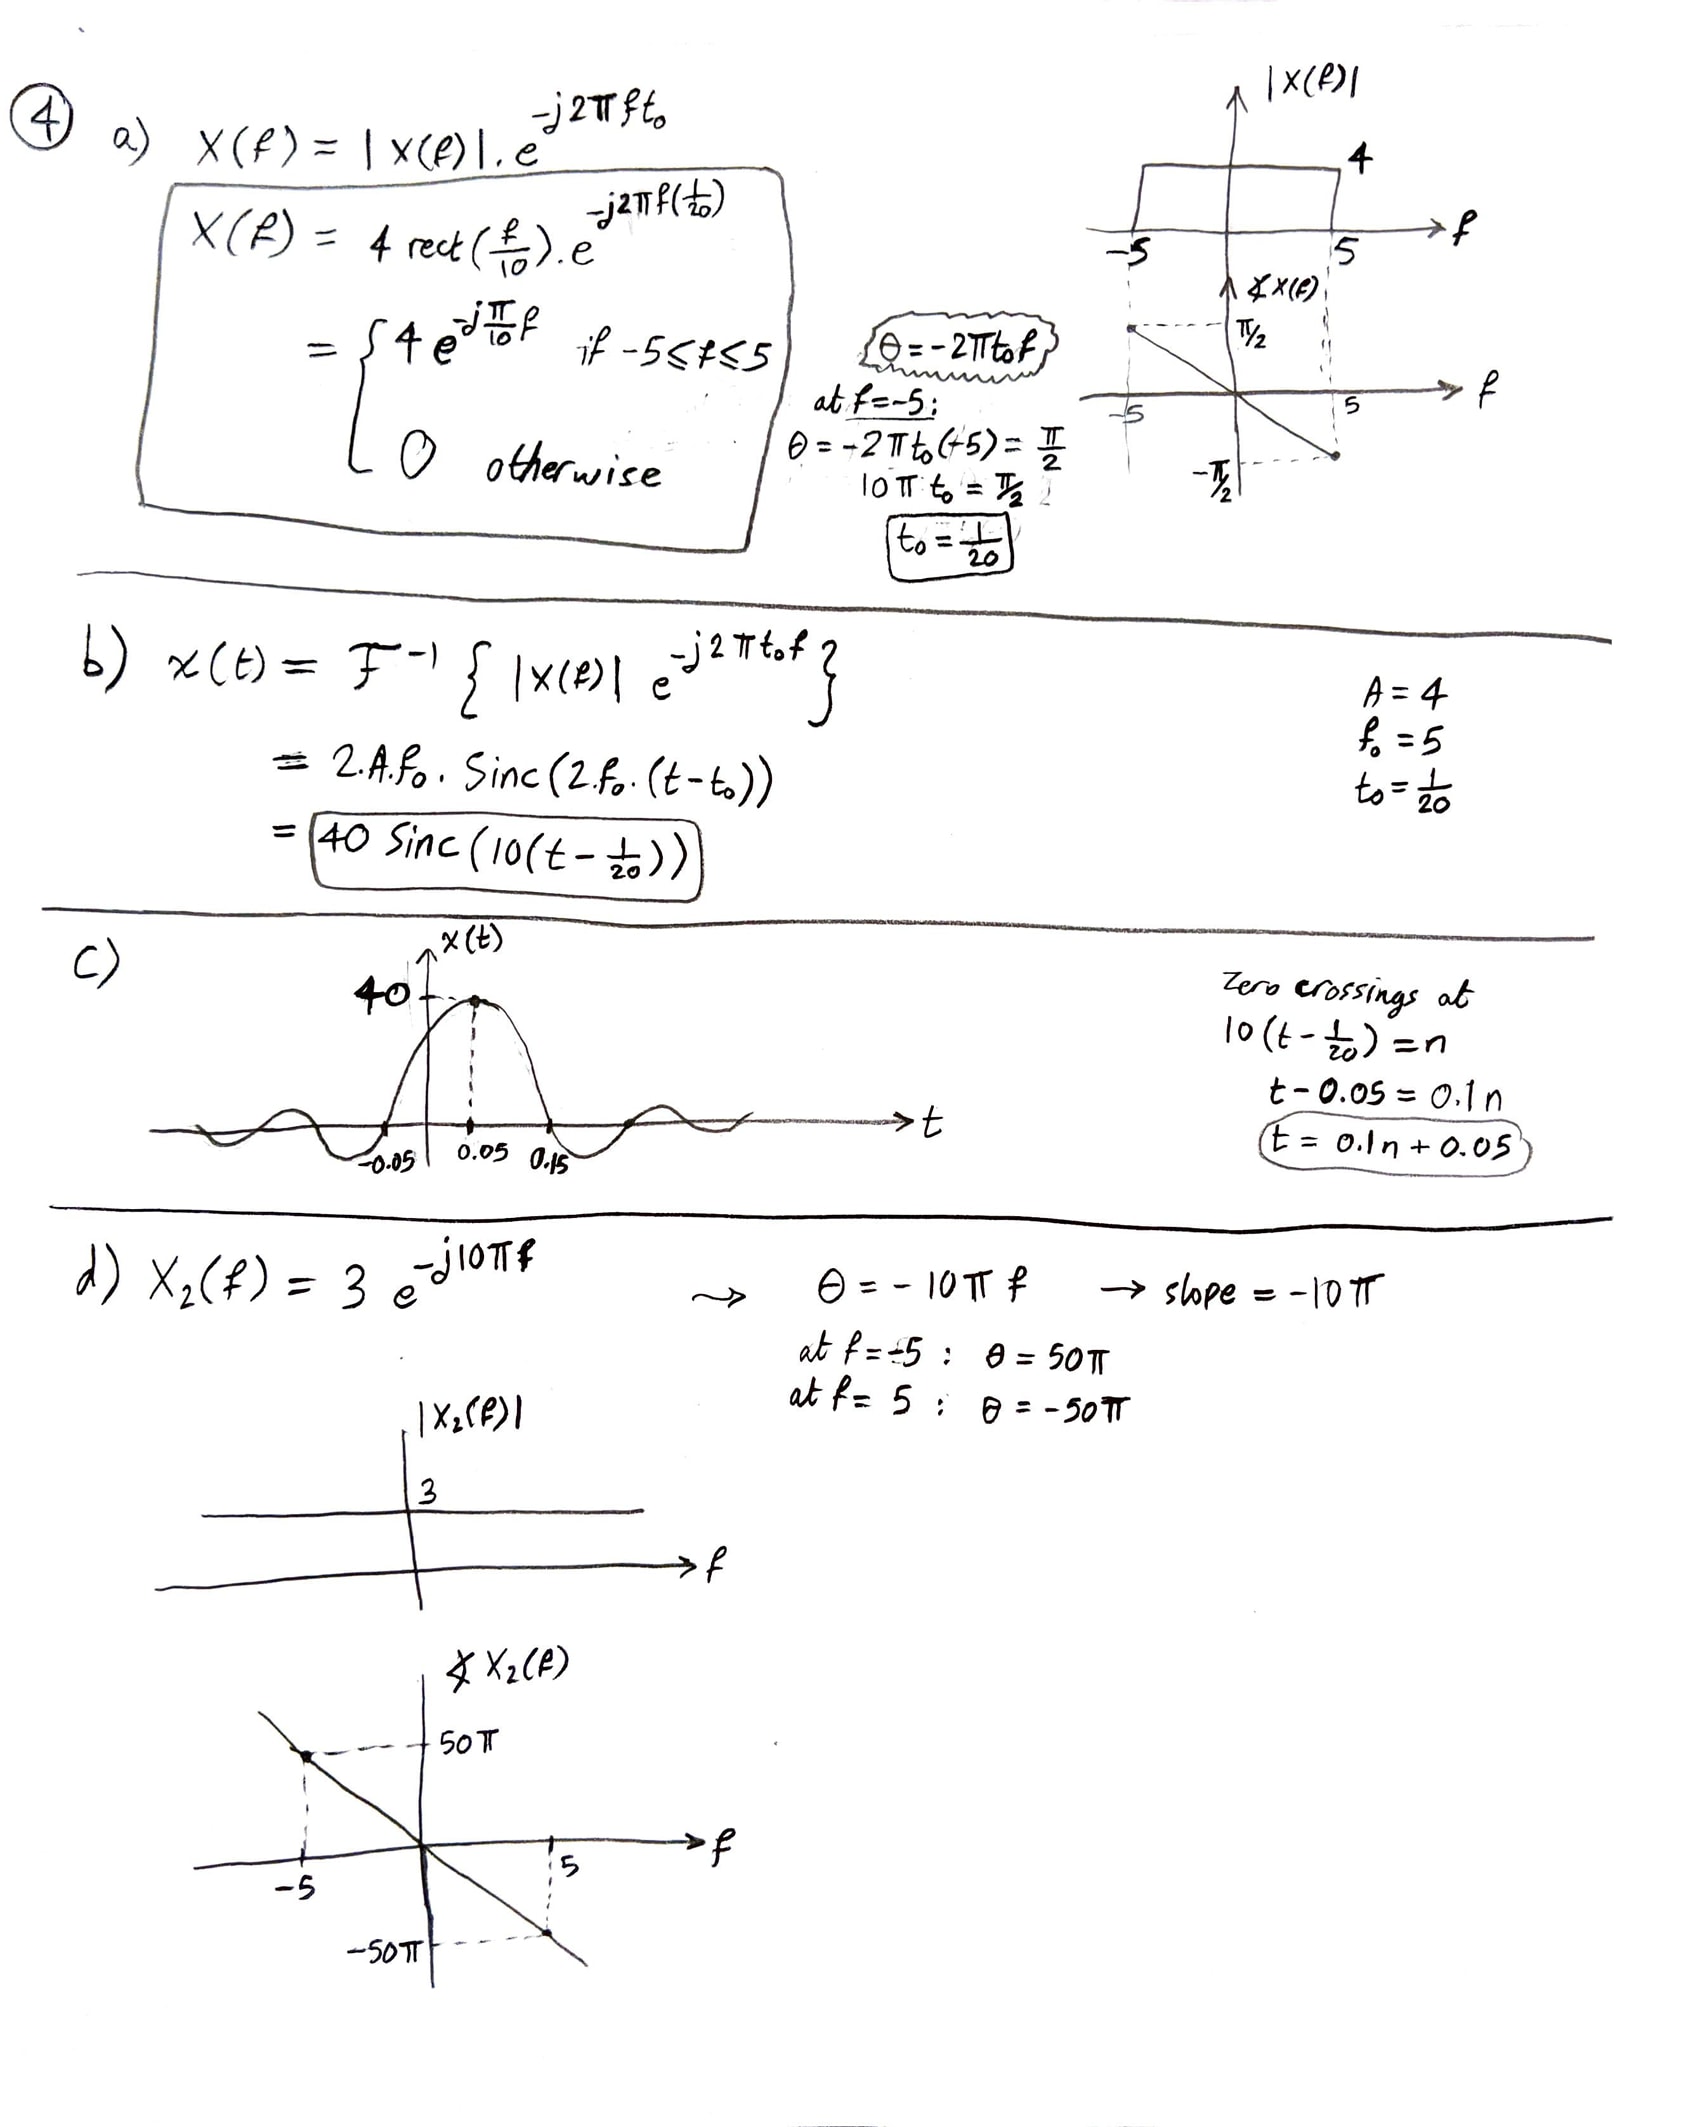 ④ a) X(f) = |X(f)| . e^{-j2πft₀}
X(f) = 4 rect(f/10) . e^{-j2πf(1/20)}
= { 4 e^{-jπ/10 f} if -5≤f≤5
0 otherwise
θ = -2πt₀f
at f=-5:
θ = -2πt₀(-5) = π/2
10πt₀ = π/2
t₀ = 1/20
|X(f)|
4
-5 5 f
∡X(f)
π/2
-5 5 f
-π/2
b) x(t) = F⁻¹ { |X(f)| e^{-j2πt₀f} }
= 2.A.f₀. Sinc(2.f₀.(t-t₀))
= 40 Sinc(10(t-1/20))
A = 4
f₀ = 5
t₀ = 1/20
c)
x(t)
40
-0.05 0.05 0.15 t
Zero crossings at
10(t-1/20) = n
t-0.05 = 0.1n
t = 0.1n + 0.05
d) X₂(f) = 3 e^{-j10πf} ⇝ θ = -10πf → slope = -10π
at f=-5 : θ = 50π
at f= 5 : θ = -50π
|X₂(f)|
3
f
∡X₂(f)
50π
-5 5 f
-50π